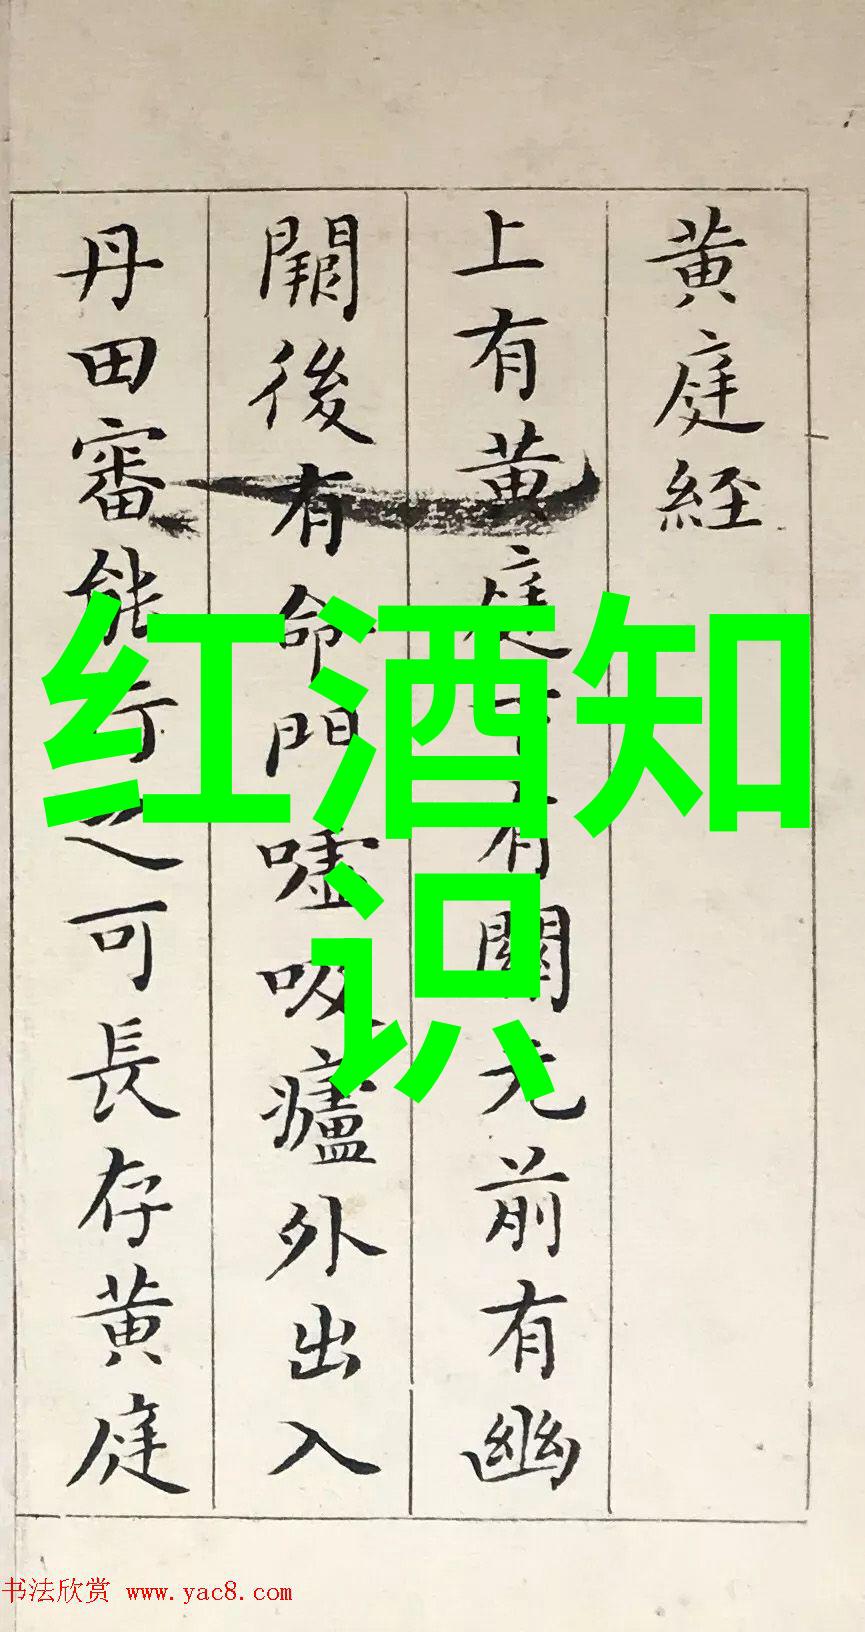 黄庭経
上有黄庭下有關元前有幽
闕後有命門嘘吸廬外出入
丹田審能行之可長存黄庭
红酒知
识
书法欣赏 www.yac8.com